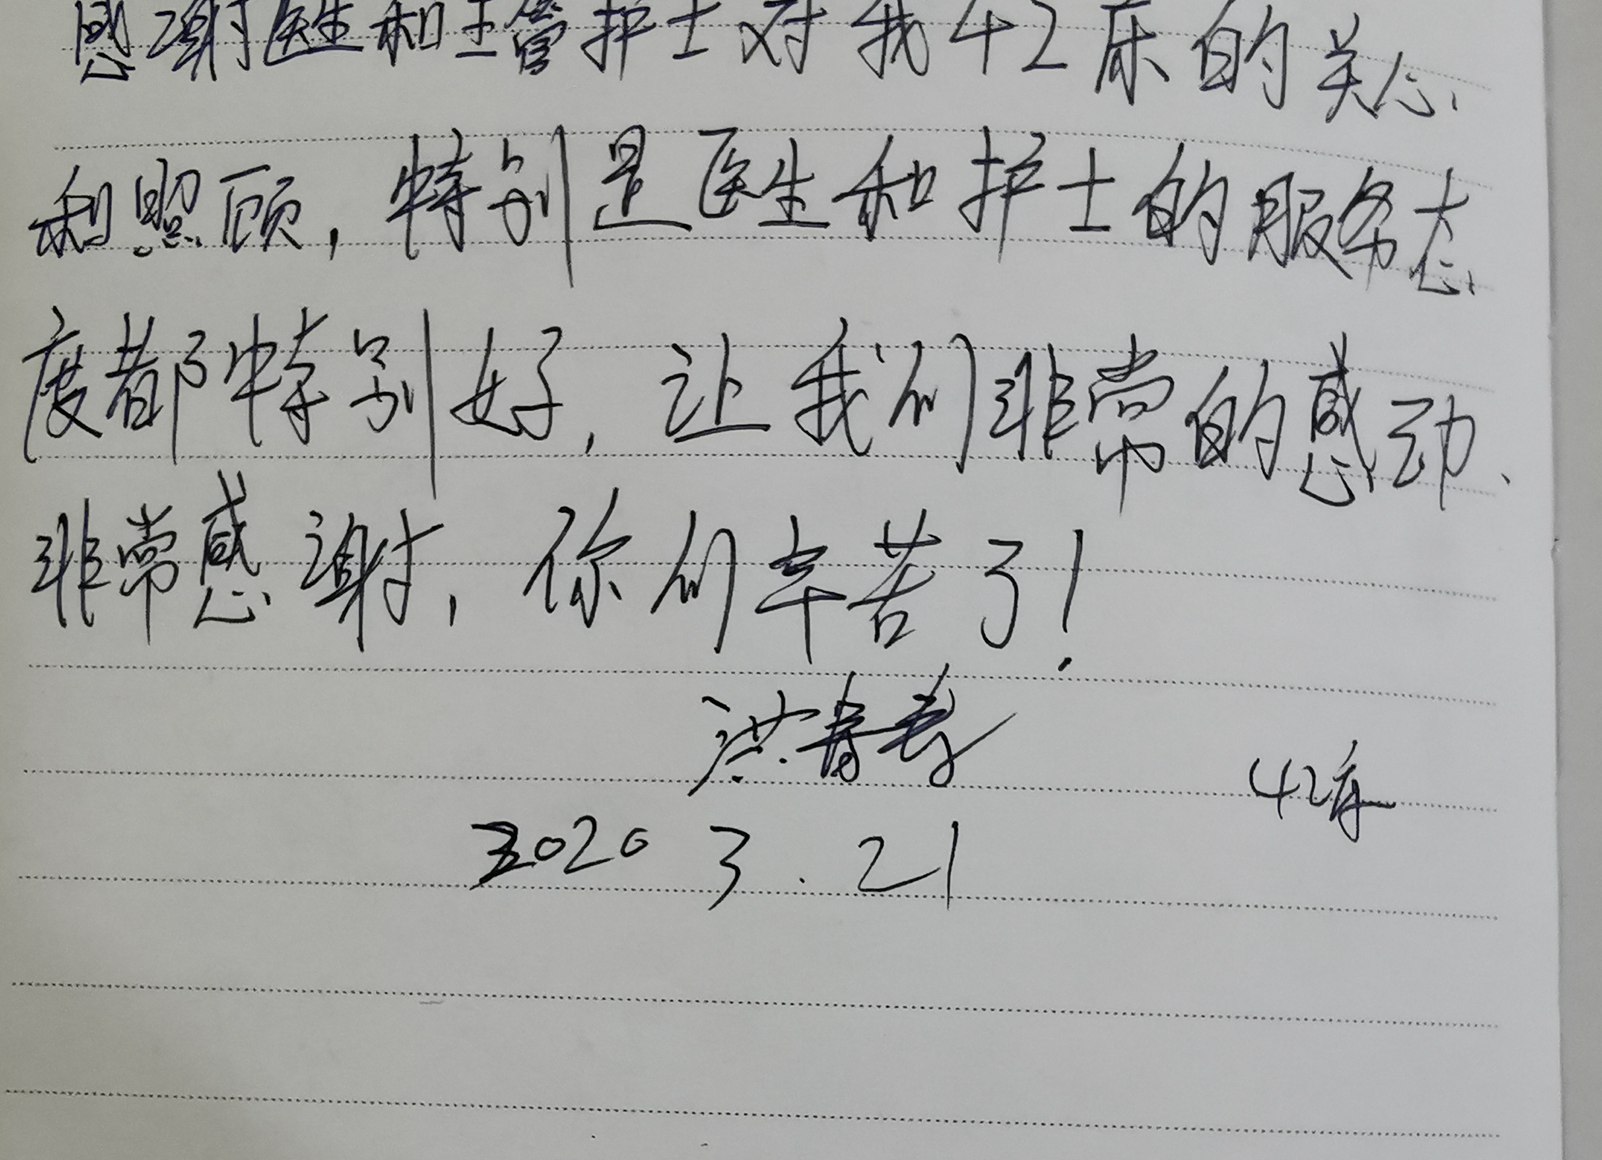 感谢医生和主管护士对我42床的关心
和照顾，特别是医生和护士的服务态
度都特别好，让我们非常的感动、
非常感谢，你们辛苦了！
洪春
42床
2020 3.21